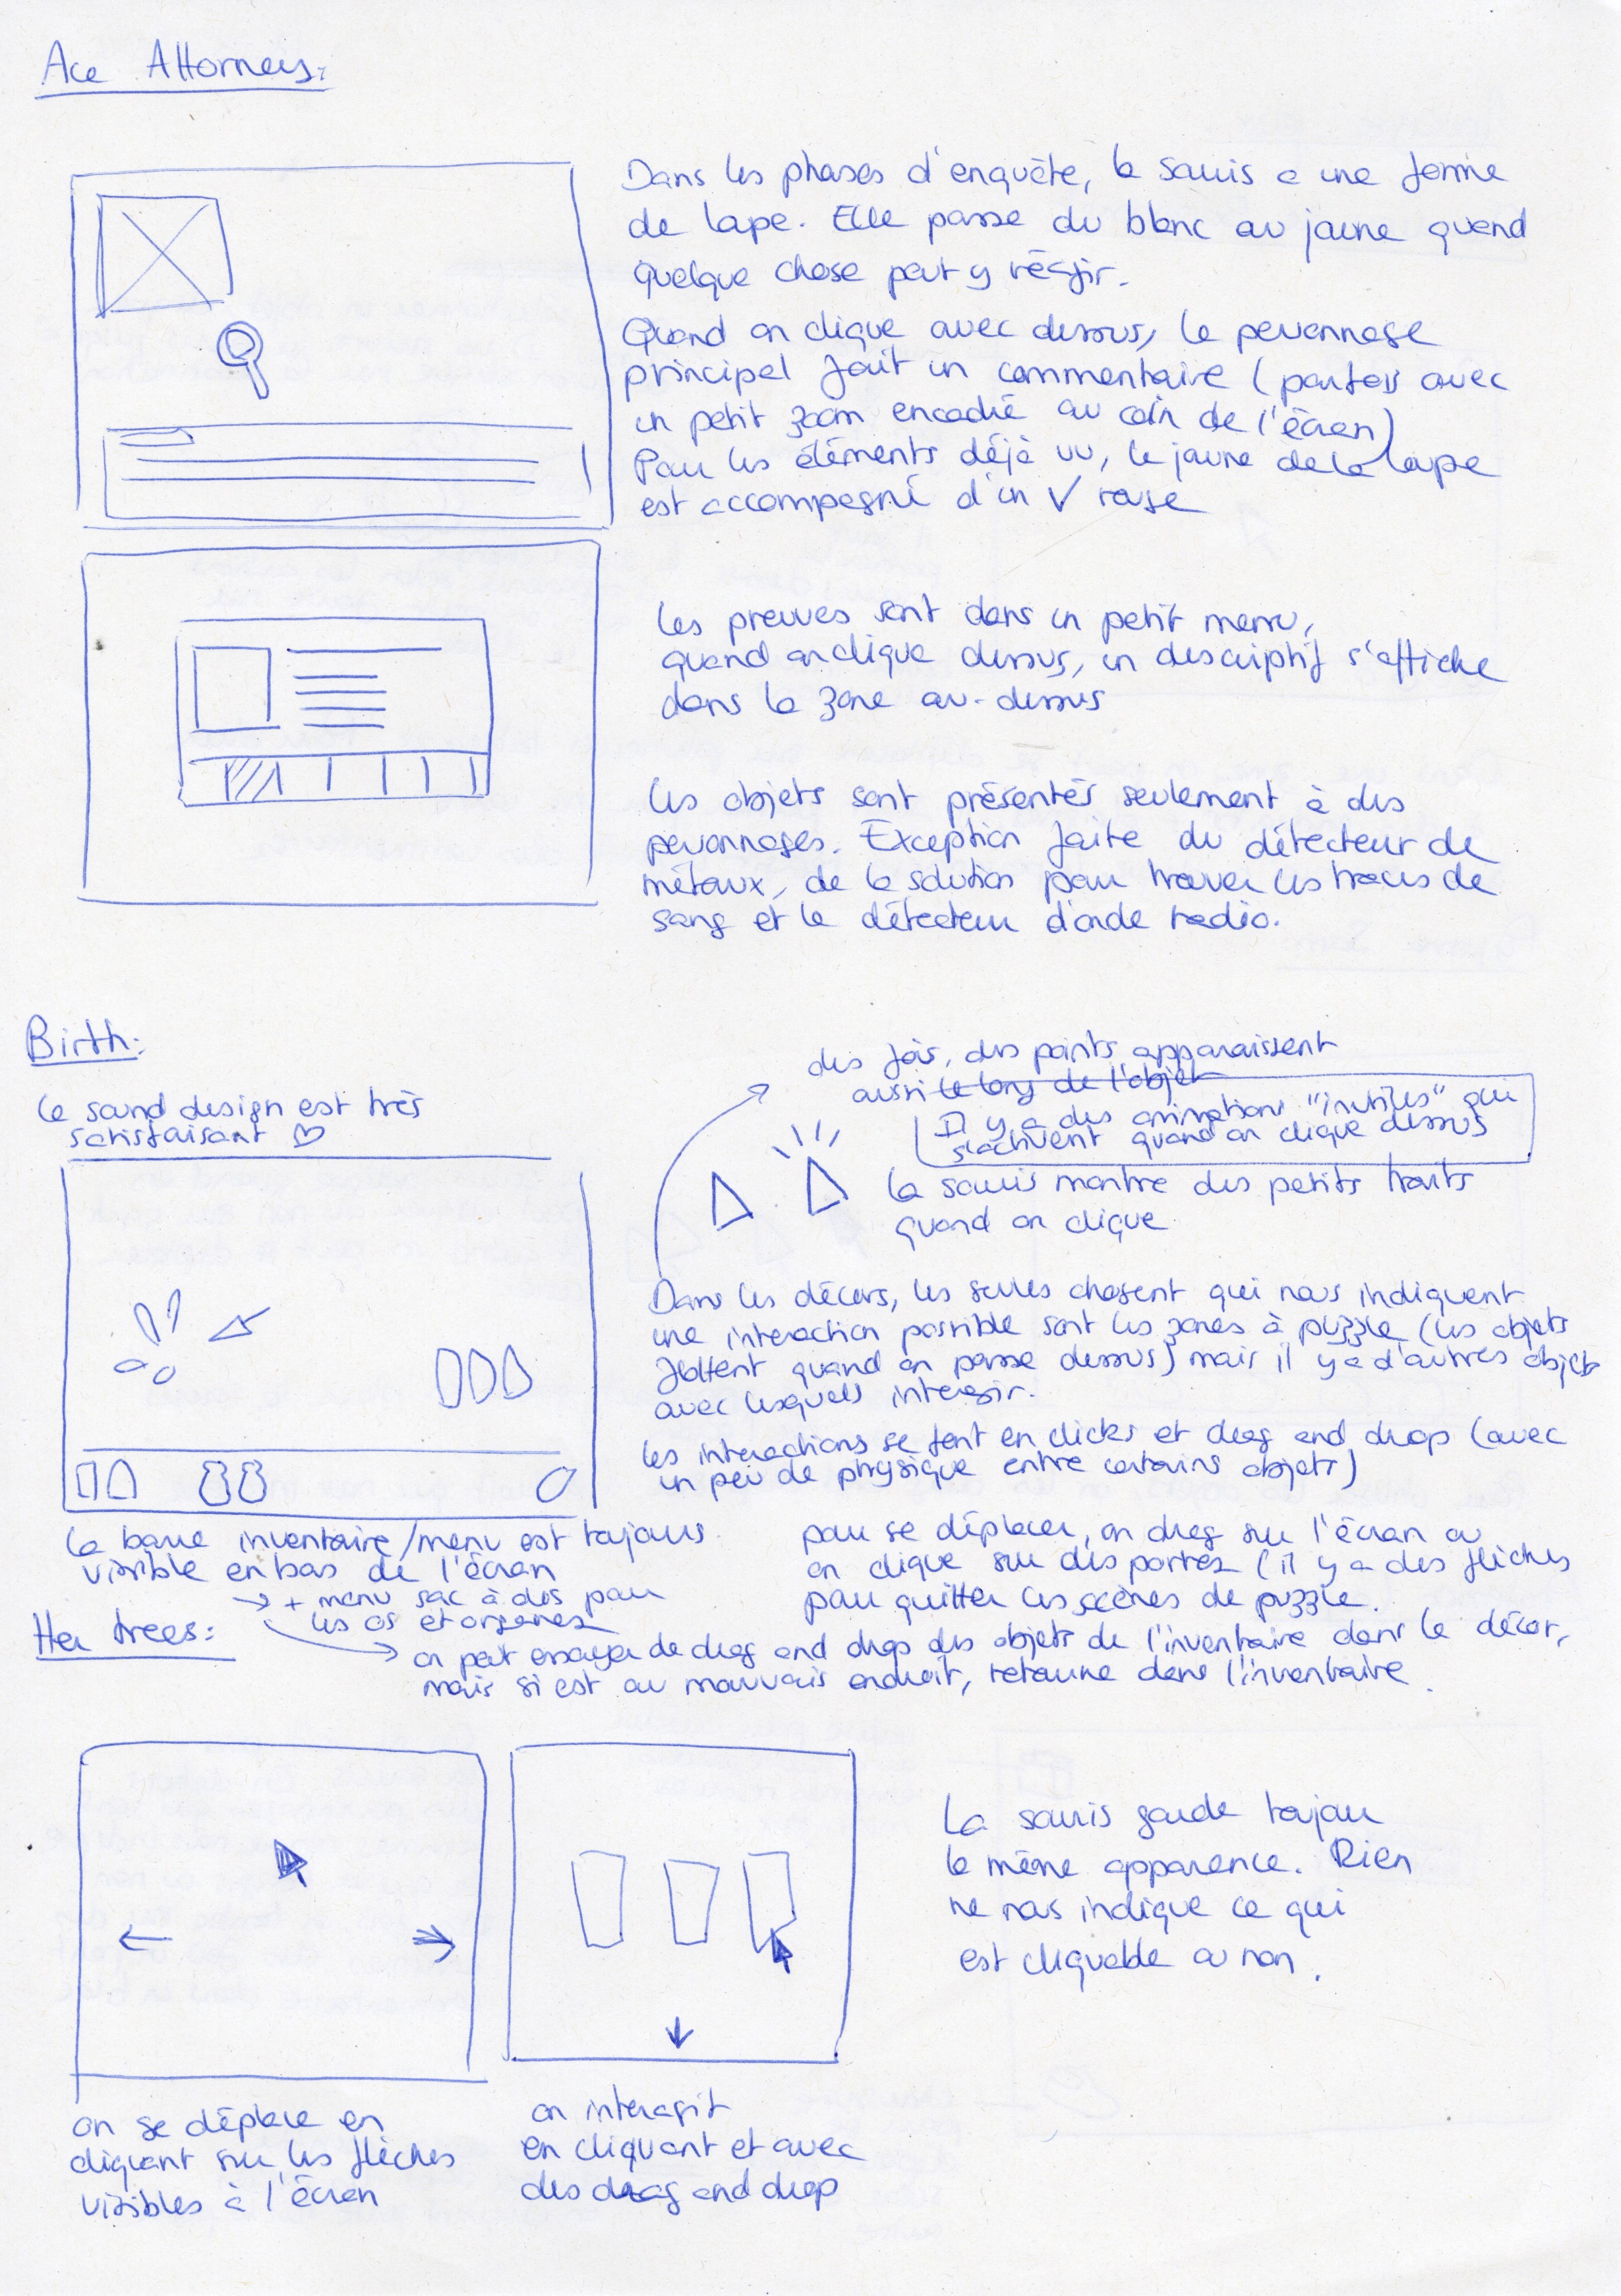 Ace Attorneys:
Dans les phases d'enquête, la souris a une forme
de loupe. Elle passe du blanc au jaune quand
quelque chose peut y réagir.
Quand on clique avec dessus, le personnage
principal fait un commentaire (parfois avec
un petit zoom encadré au coin de l'écran)
Pour les éléments déjà vu, le jaune de la loupe
est accompagné d'un V rouge
Les preuves sont dans un petit menu,
quand on clique dessus, un descriptif s'affiche
dans la zone au-dessus
Les objets sont présentés seulement à des
personnages. Exception faite du détecteur de
métaux, de la solution pour trouver les traces de
sang et le détecteur d'onde radio.
Birth:
le sound design est très
satisfaisant ♡
des fois, des points apparaissent
aussi le long de l'objet
Il y a des animations "inutiles" qui
s'activent quand on clique dessus
la souris montre des petits traits
quand on clique
Dans les décors, les seules chosent qui nous indiquent
une interaction possible sont les zones à puzzle (les objets
flottent quand on passe dessus) mais il y a d'autres objets
avec lesquels interagir.
les interactions se font en clicks et drag and drop (avec
un peu de physique entre certains objets)
la barre inventaire/menu est toujours
visible en bas de l'écran
→ + menu sac à dos pour
les os et organes
pour se déplacer, on drag sur l'écran ou
on clique sur des portes (il y a des flèches
pour quitter les scènes de puzzle.
on peut essayer de drag and drop des objets de l'inventaire dans le décor,
mais si est au mauvais endroit, retourne dans l'inventaire.
Her trees:
La souris garde toujour
la même apparence. Rien
ne nous indique ce qui
est cliquable ou non.
on se déplace en
cliquant sur les flèches
visibles à l'écran
on interagit
en cliquant et avec
des drag and drop